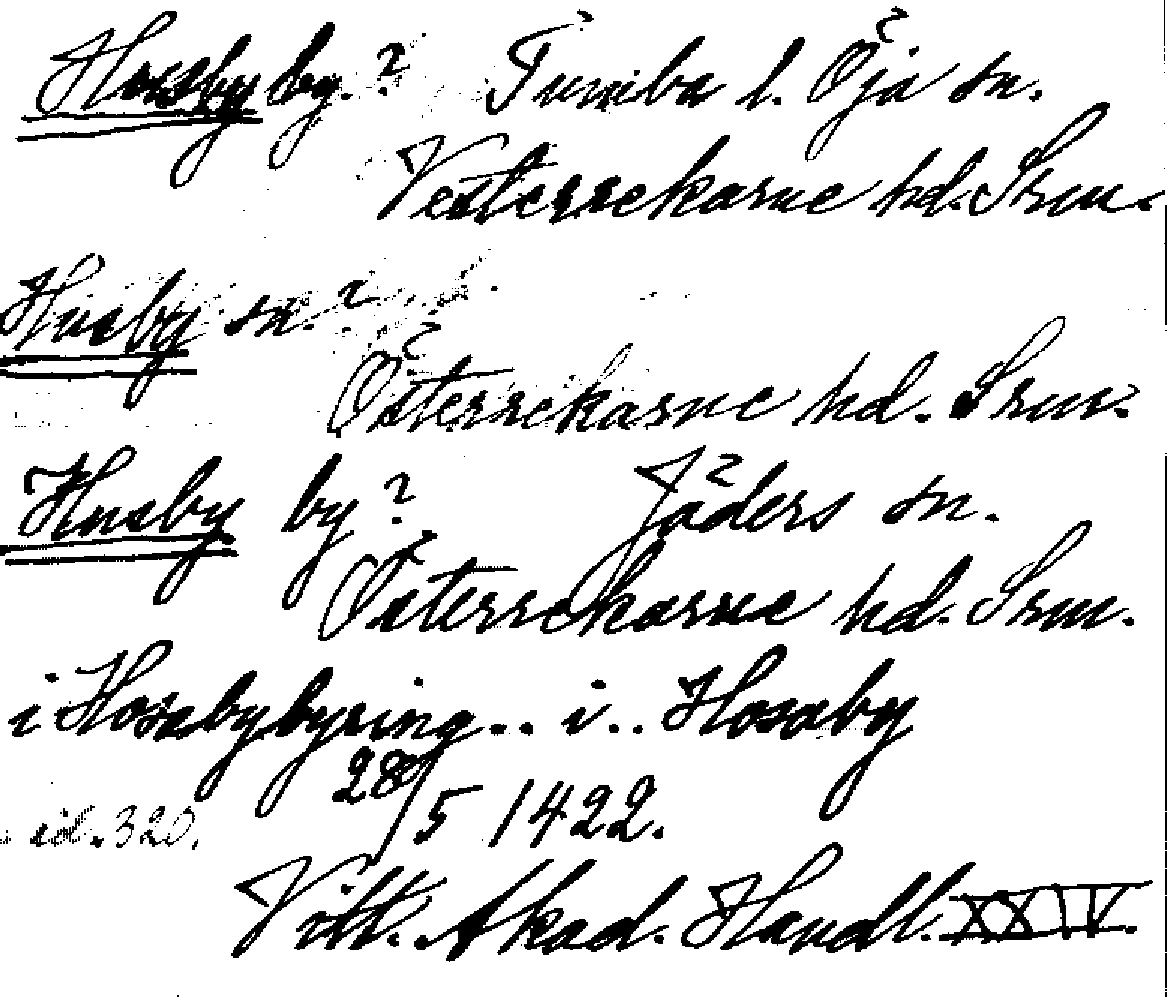 Husby by? Tumba l. Öja sn.
Vesterrekarne hd. Srm.
Husby sn.?
Österrekarne hd. Srm.
Husby by? Jäders sn.
Österrekarne hd. Srm.
i Hosabybyring.. i.. Hosaby
28/5 1422.
söl. 320.
Vitt. Akad. Handl. XXIV.